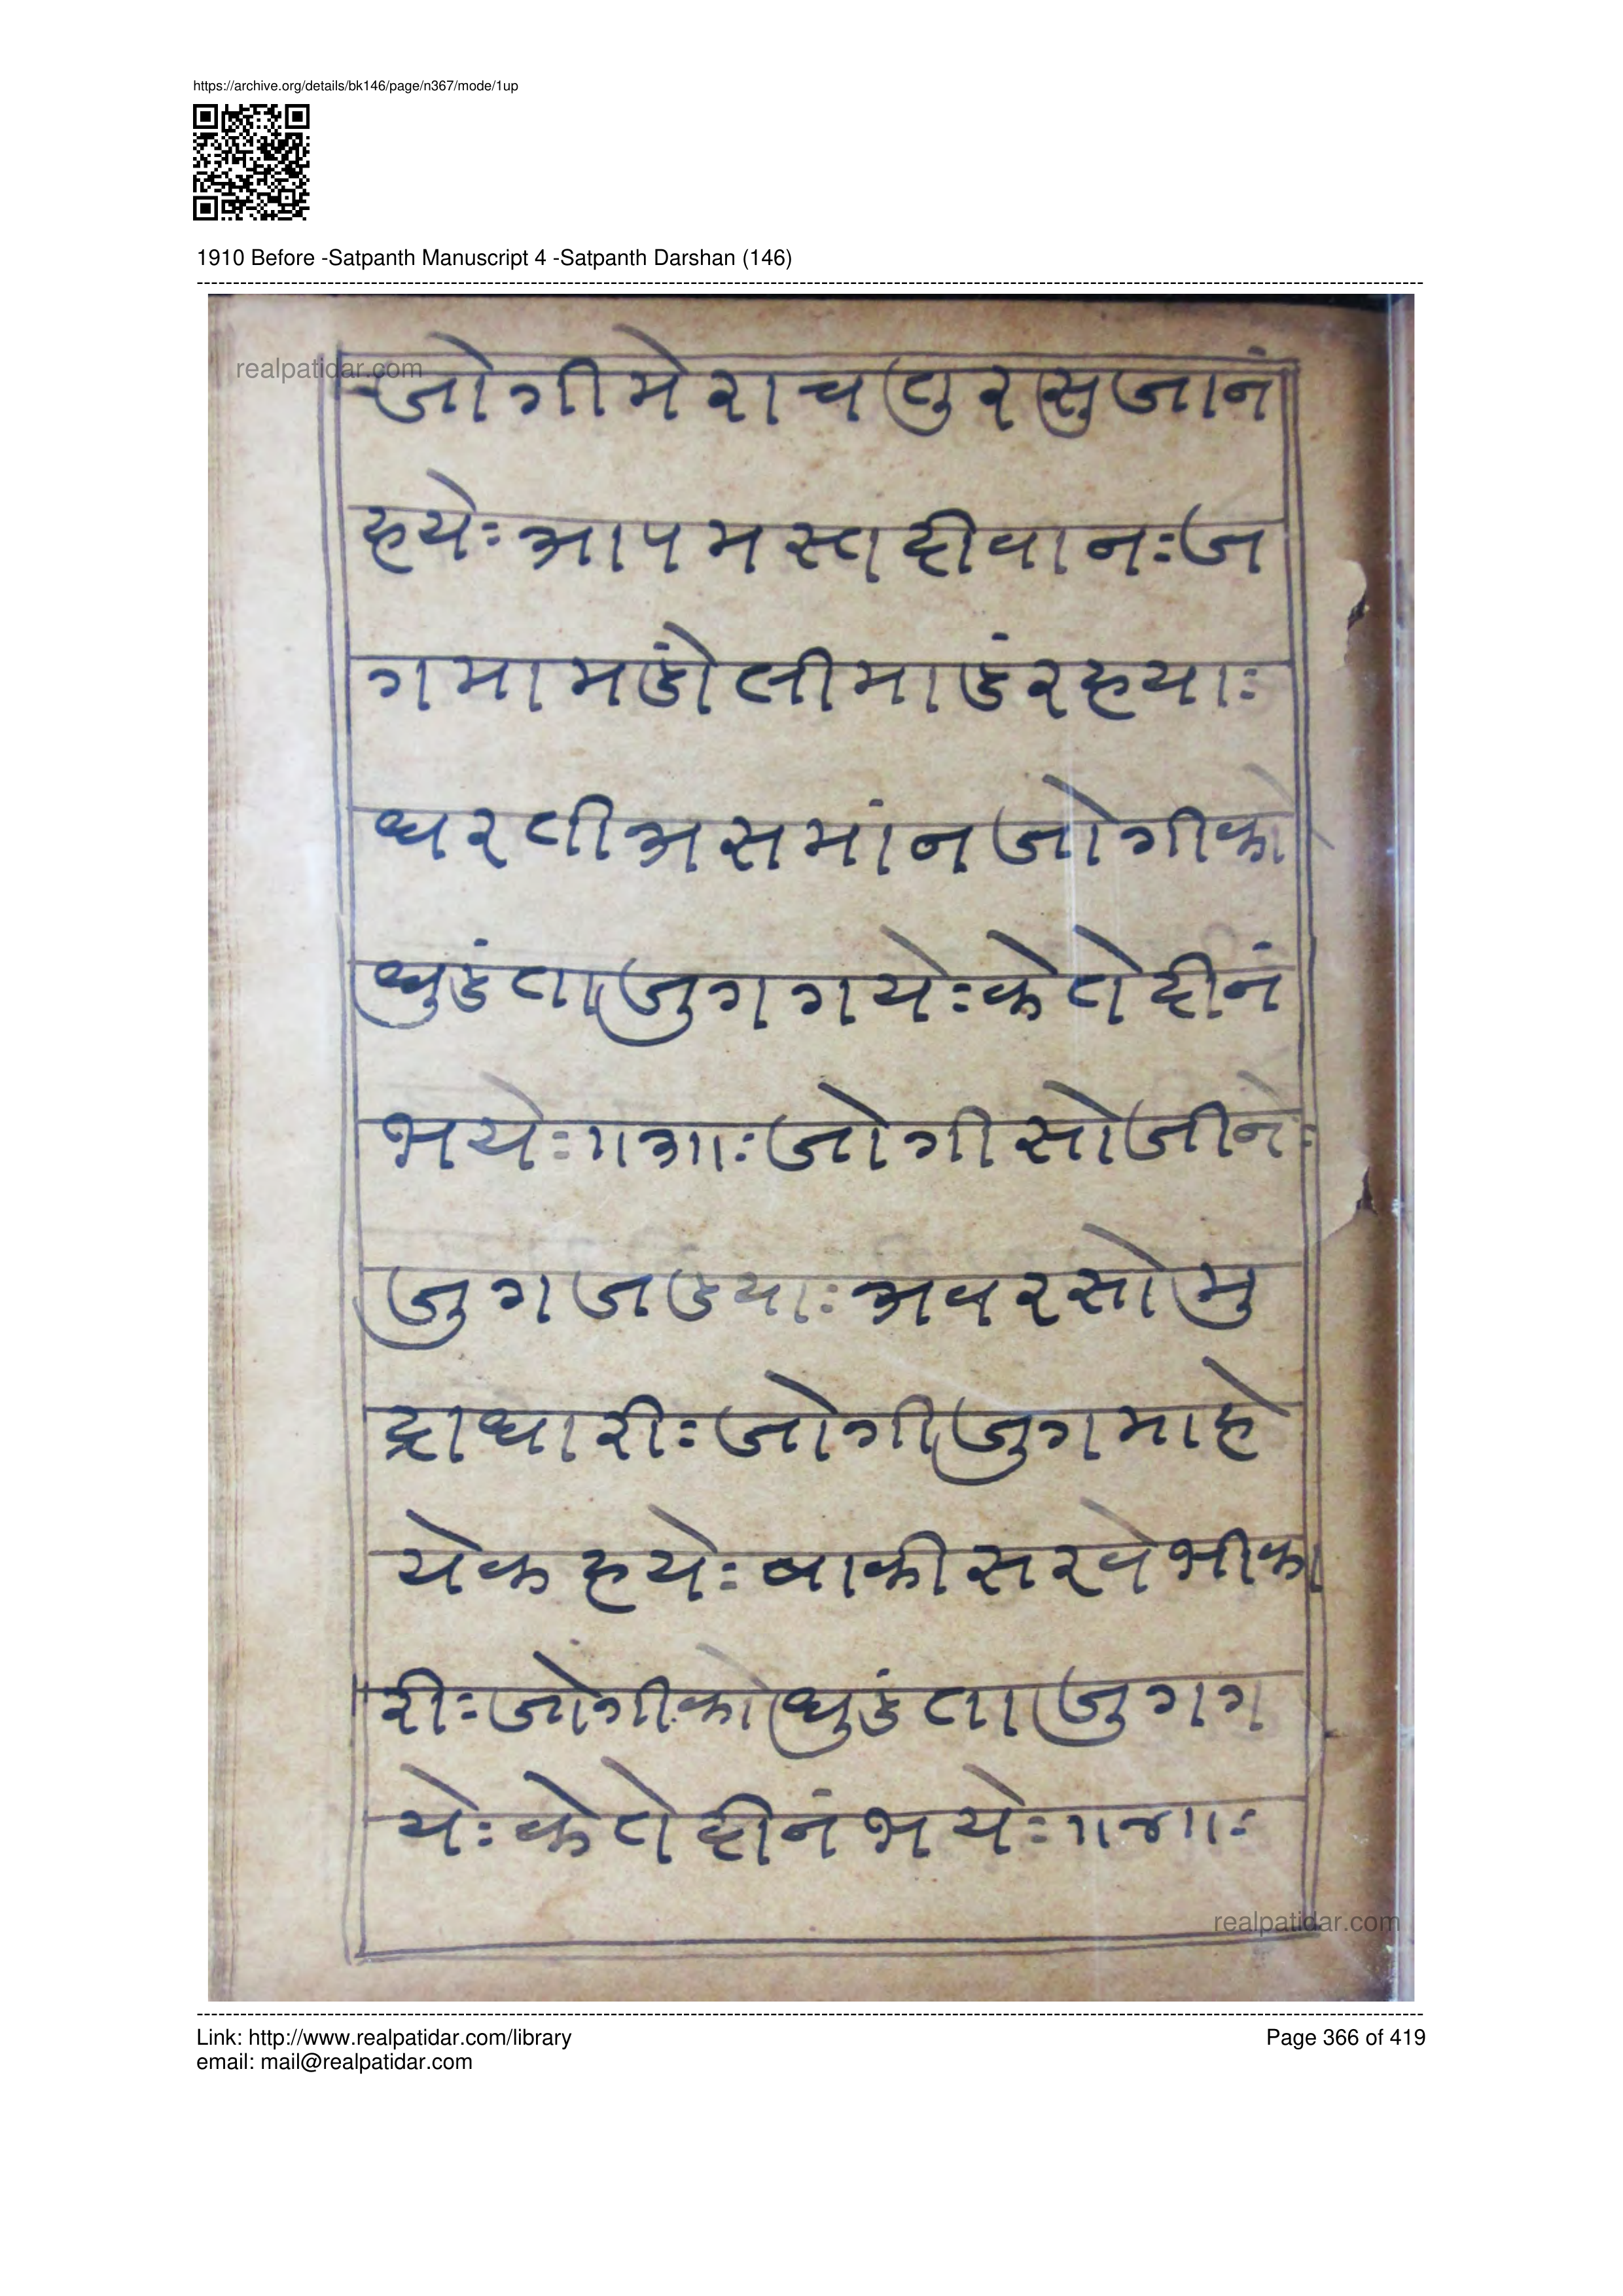 https://archive.org/details/bk146/page/n367/mode/1up
1910 Before -Satpanth Manuscript 4 -Satpanth Darshan (146)
realpatidar.com
जोगीमेराचतुरसुजानं
हयेः आपमस्तदीवानः ज
गमामडोंलीमाडंरहयाः
धरतीअसमांनजोगीको
धुडंताजुगगयेः केतेदीनं
भयेः ॥३॥ः जोगीसोजीने
जुगजडयाः अवरसोमु
द्राधारीः जोगीजुगमाहे
येकहयेः बाकीसरवेभीका
रीः जोगीकोधुडंताजुगग
येः केतेदीनंभयेः ॥४॥ः
realpatidar.com
Link: http://www.realpatidar.com/library
Page 366 of 419
email: mail@realpatidar.com